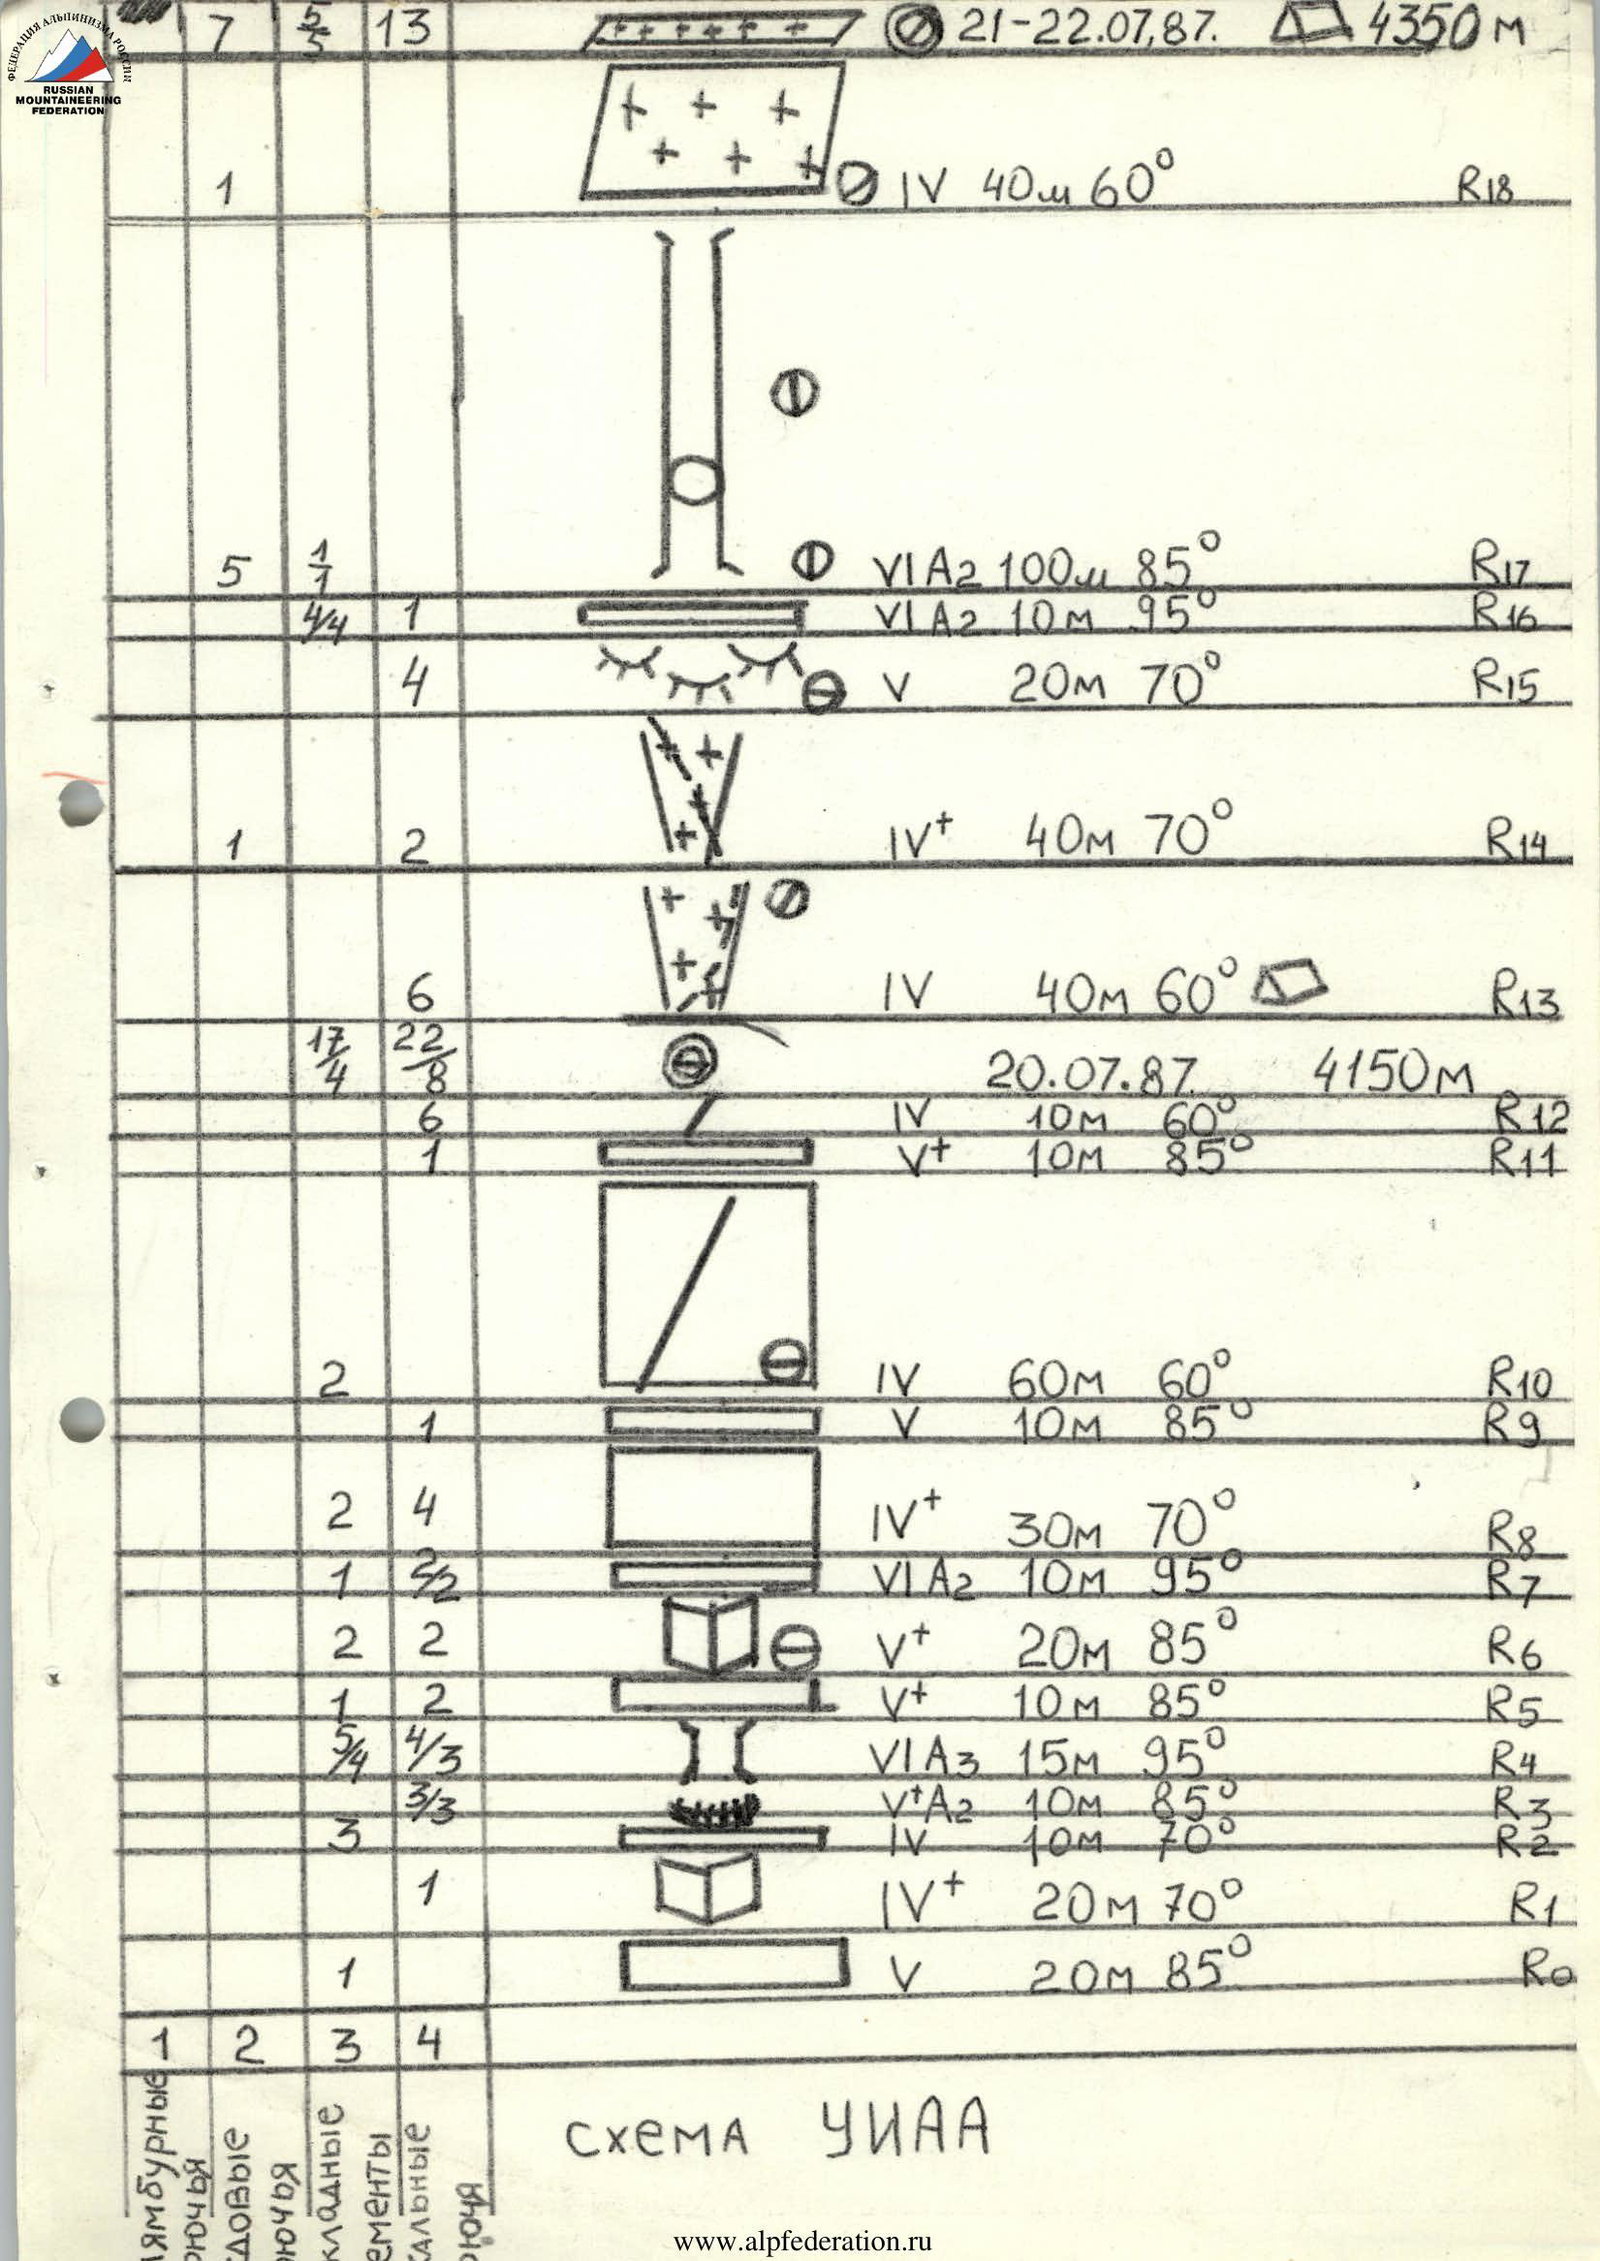 ФЕДЕРАЦИЯ АЛЬПИНИЗМА РОССИИ
RUSSIAN
MOUNTAINEERING
FEDERATION
7 5/5 13 21-22.07.87. 4350м
1 IV 40м 60° R18
5 1/1 VI A2 100м 85° R17
4/4 1 VI A2 10м 95° R16
4 V 20м 70° R15
1 2 IV+ 40м 70° R14
6 IV 40м 60° R13
17/4 22/8 20.07.87. 4150м
6 IV 10м 60° R12
1 V+ 10м 85° R11
2 IV 60м 60° R10
1 V 10м 85° R9
2 4 IV+ 30м 70° R8
1 2/2 VI A2 10м 95° R7
2 2 V+ 20м 85° R6
1 2 V+ 10м 85° R5
5/4 4/3 VI A3 15м 95° R4
3/3 V+A2 10м 85° R3
3 IV 10м 70° R2
1 IV+ 20м 70° R1
1 V 20м 85° R0
1 2 3 4
схема УИАА
www.alpfederation.ru